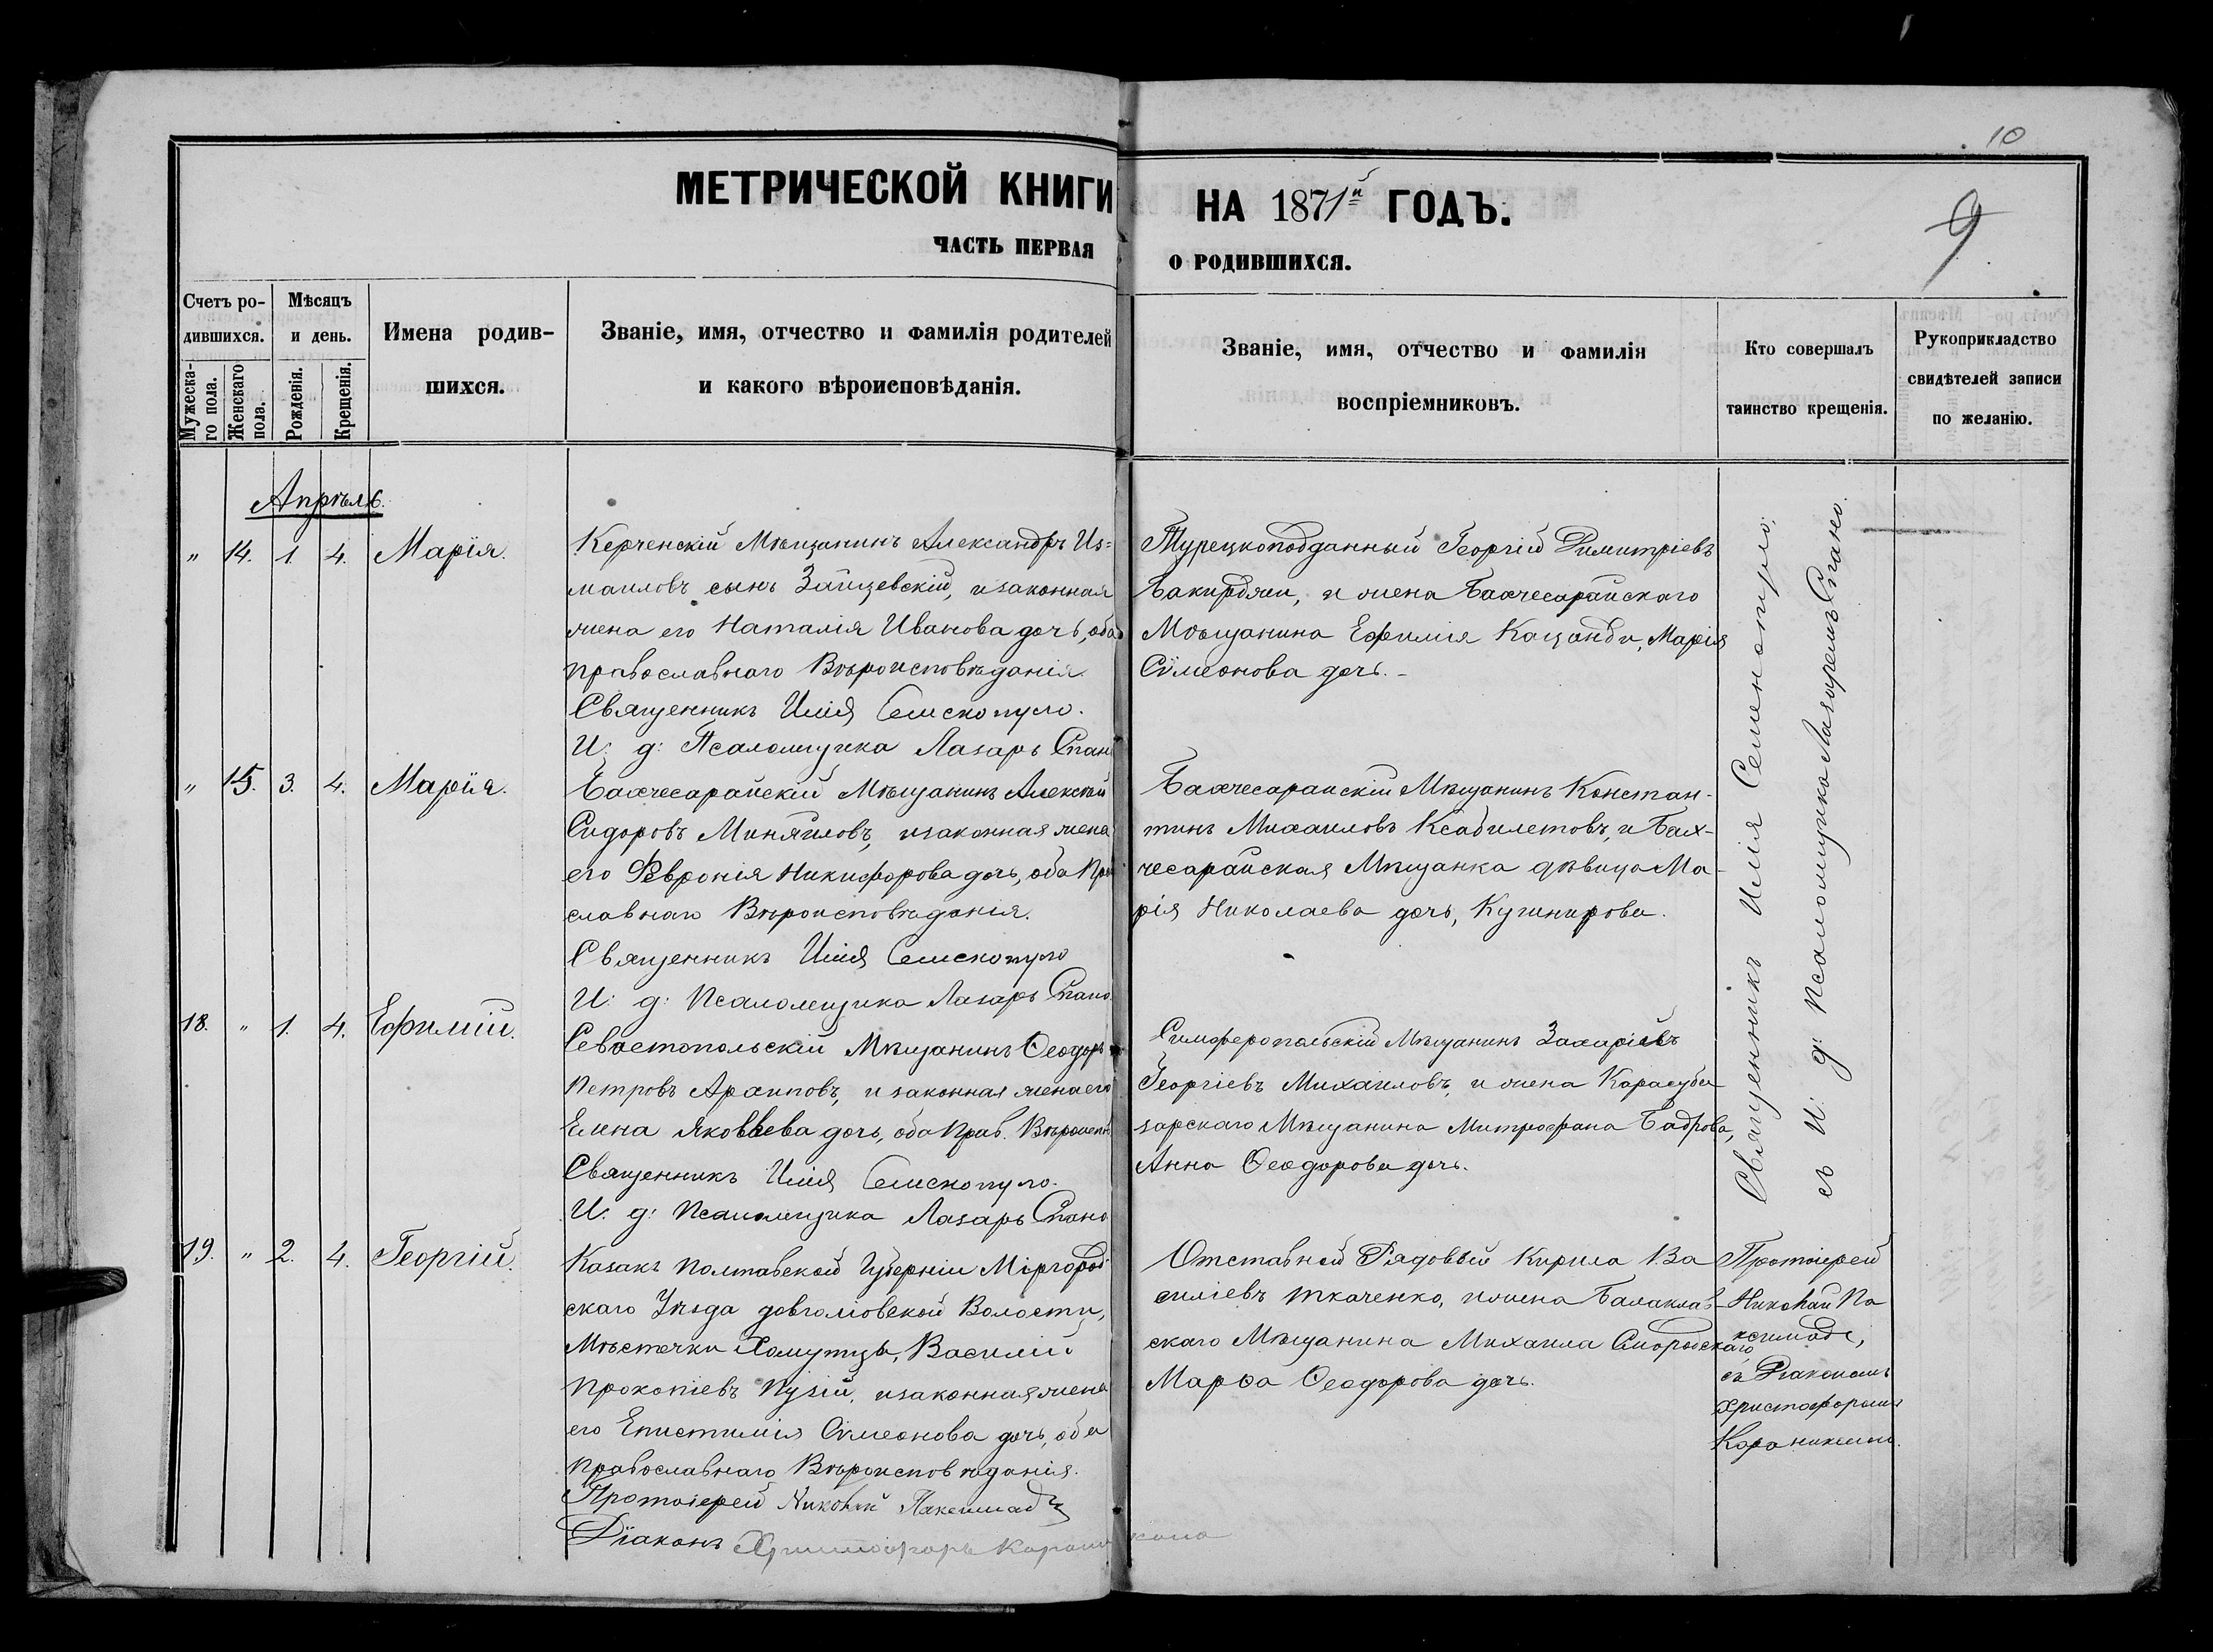 10
9
МЕТРИЧЕСКОЙ КНИГИ НА 1871й ГОДЪ.
ЧАСТЬ ПЕРВАЯ О РОДИВШИХСЯ.
Счетъ ро-
дившихся.
Мужеска-
го пола.
Женскаго
пола.
Мѣсяцъ
и день.
Рожденія.
Крещенія.
Имена родив-
шихся.
Званіе, имя, отчество и фамилія родителей
и какого вѣроисповѣданія.
Званіе, имя, отчество и фамилія
воспріемниковъ.
Кто совершалъ
таинство крещенія.
Рукоприкладство
свидѣтелей записи
по желанію.
Апрѣль.
„ 14. 1. 4. Марія.
Керченскій Мѣщанинъ Александръ Из=
маиловъ сынъ Зайцевскій, и законная
жена его Наталія Иванова дочь, оба
православнаго Вѣроисповѣданія.
Священникъ Илія Семенопуло.
И: д: Псаломщика Лазарь Спано
Турецкоподданный Георгій Димитріевъ
Бакирджи, и жена Бахчесарайскаго
Мѣщанина Ефимія Кацанди, Марія
Сѵмеонова дочь.-
„ 15. 3. 4. Марія.
Бахчесарайскій Мѣщанинъ Алексѣй
Сидоровъ Миняиловъ, и законная жена
его Февронія Никифорова дочь, оба Пра
славнаго Вѣроисповѣданія.
Священникъ Илія Семенопуло
И: д: Псаломщика Лазарь Спано.
Бахчесарайскій Мѣщанинъ Констан-
тинъ Михаиловъ Ксабилетовъ, и Бах-
чесарайская Мѣщанка дѣвица Ма-
рія Николаева дочь, Кушнирова.
18. „ 1. 4. Ефимій.
Севастопольскій Мѣщанинъ Ѳеодоръ
Петровъ Архиповъ, и законная жена его
Елена Яковлева дочь, оба Прав. Вѣроисп
Священникъ Илія Семенопуло.
И: д: Псаломщика Лазарь Спано
Симферопольскій Мѣщанинъ Захаріевъ
Георгіевъ Михаиловъ, и жена Карасуба
зарскаго Мѣщанина Митрофана Бадрова,
Анна Ѳеодорова дочь.
Священникъ Илія Семенопуло.
съ И: д: Псаломщика Лазаремъ Спано.
19. „ 2. 4. Георгій.
Казакъ Полтавской Губерніи Міргород
скаго Уѣзда довголіовской Волости,
Мѣстечки Хомутцы, Василій
Прокопіевъ Пузій, и законная жена
его Епистимія Сѵмеонова дочь, оба
православнаго Вѣроисповѣданія.
Протоіерей Николай Паксимади
Діаконъ Христофоръ
Отставной Рядовый Кирила Ва
силіевъ Ткаченко, и жена Балаклав-
скаго Мѣщанина Михаила
Марѳа Ѳеодорова дочь.
Протоіерей
Николай Па
ксимади,
съ Діакономъ
Христофоромъ